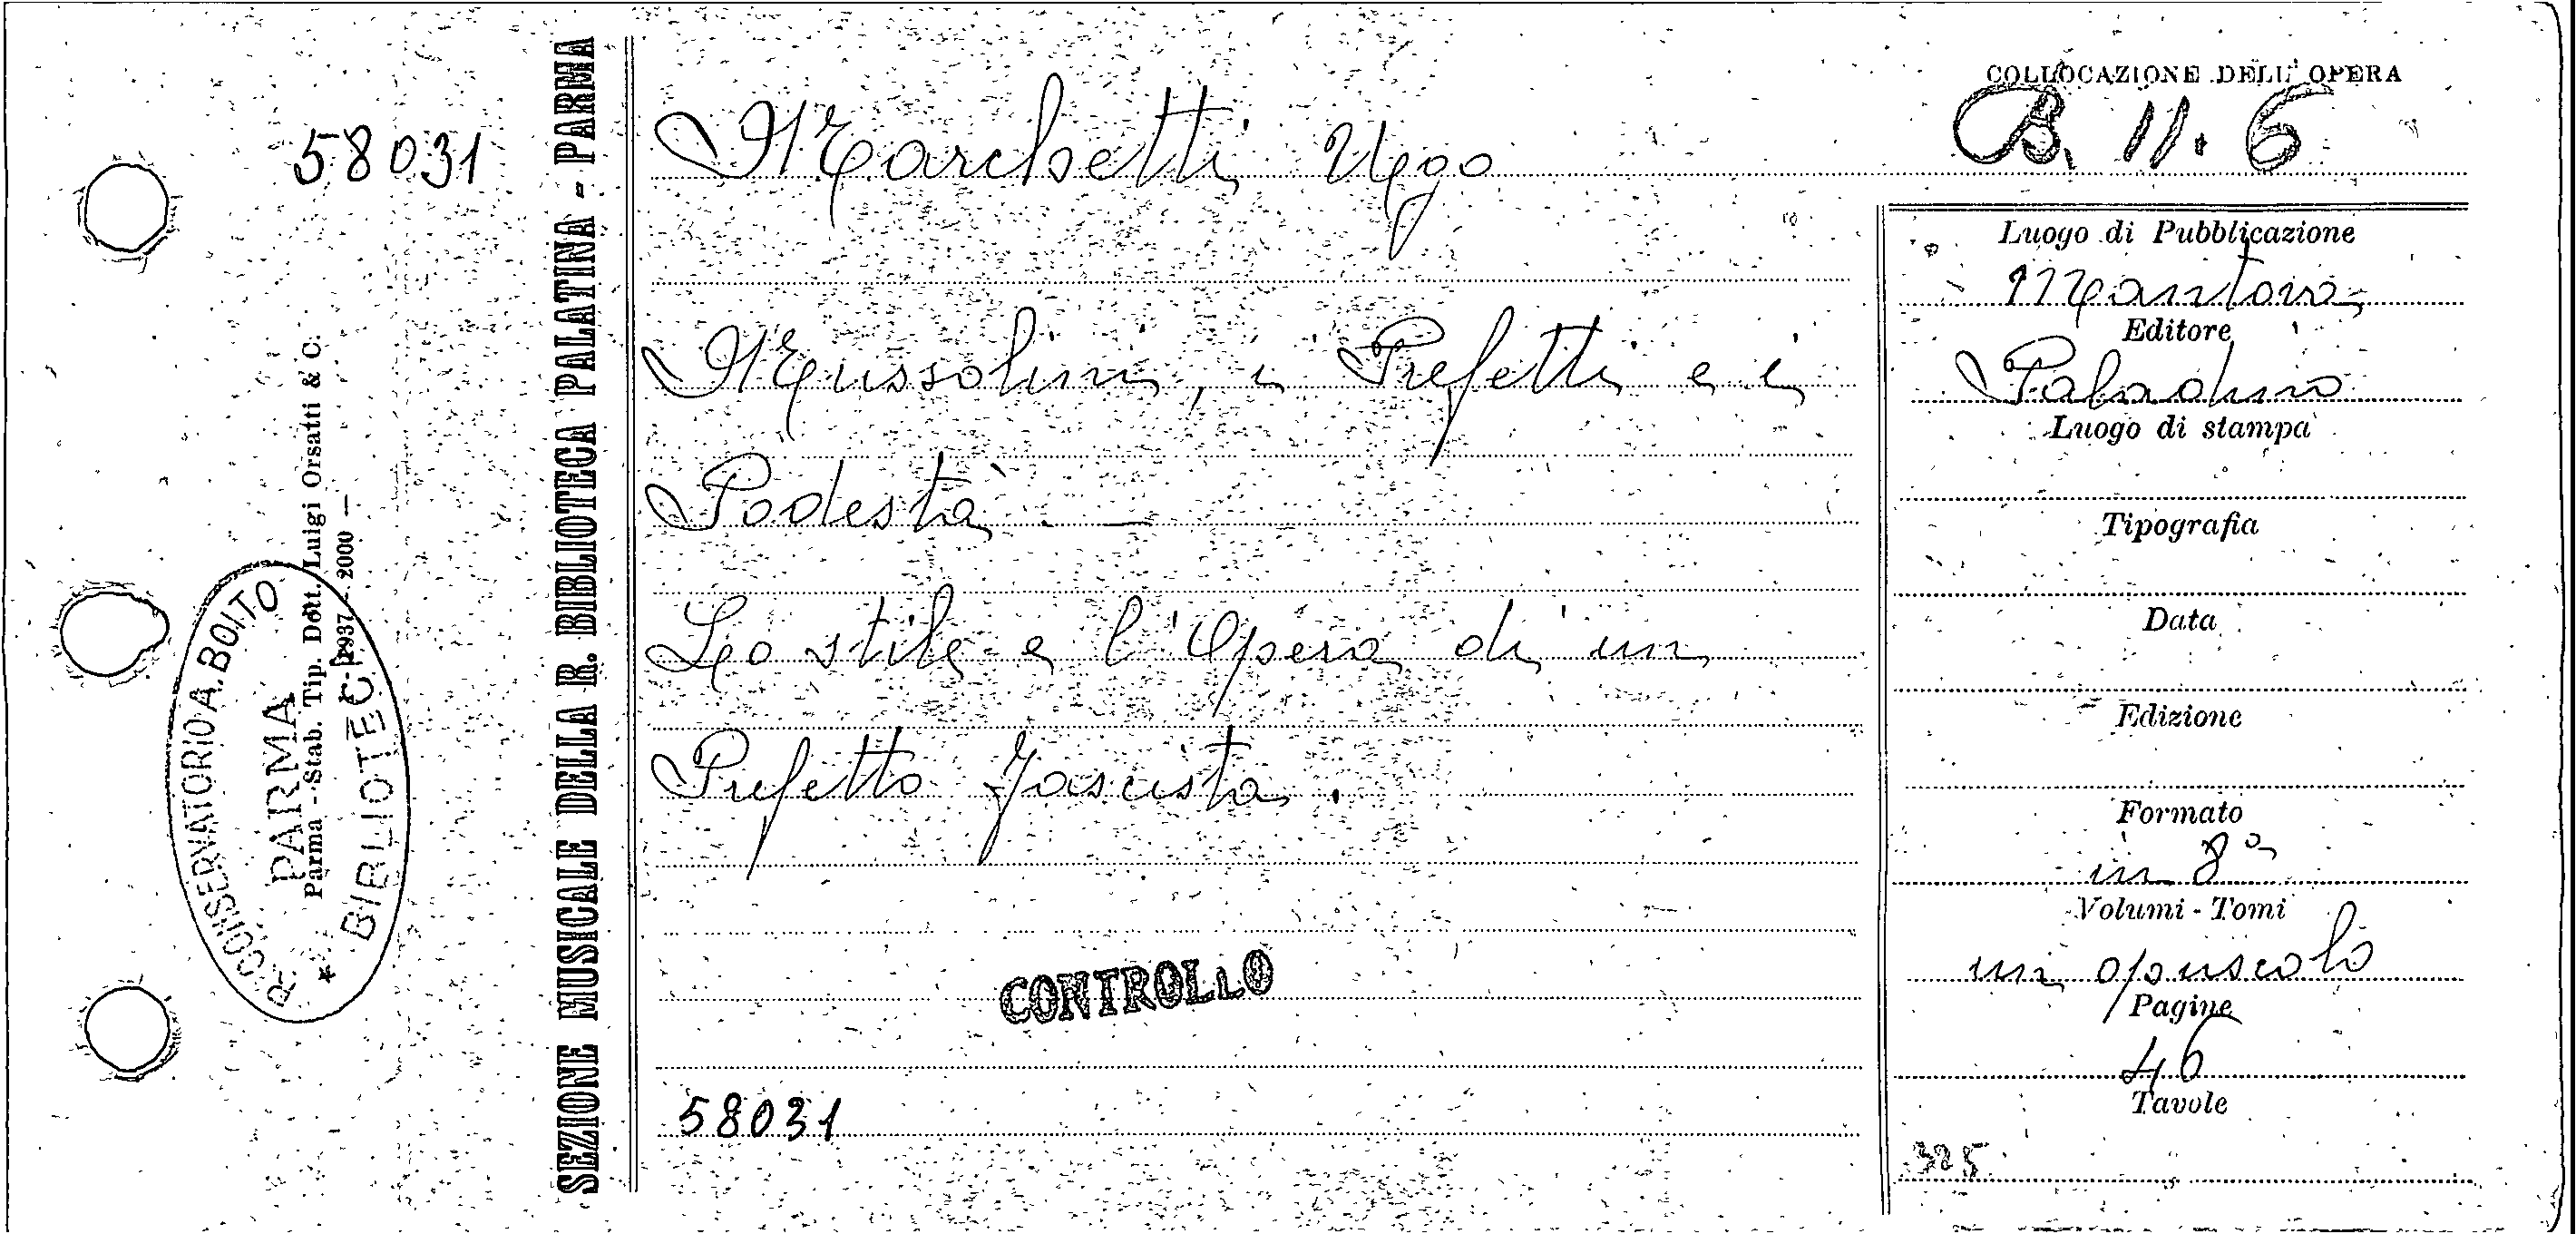 58031
SEZIONE MUSICALE DELLA R. BIBLIOTECA PALATINA - PARMA
Parma - Stab. Tip. Dott. Luigi Orsatti & C.
1937 - 2000 -
R. CONSERVATORIO A. BOITO
PARMA
BIBLIOTECA
Marchetti Ugo
Mussolini, i Prefetti e i
Podestà. —
Lo stile e l'Opera di un
Prefetto fascista.
CONTROLLO
58031
COLLOCAZIONE DELL'OPERA
B. II. 6
Luogo di Pubblicazione
Mantova
Editore
Paladino
Luogo di stampa
Tipografia
Data
Edizione
Formato
in 8°
Volumi - Tomi
un opuscolo
Pagine
46
Tavole
325